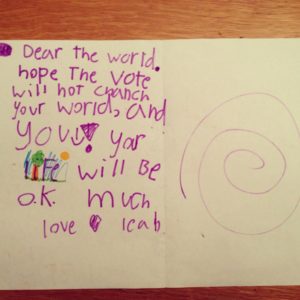 Dear the world.
hope The vote
will hot chanch
your world, and
you! yor
life will Be
o.k. much
love Icab